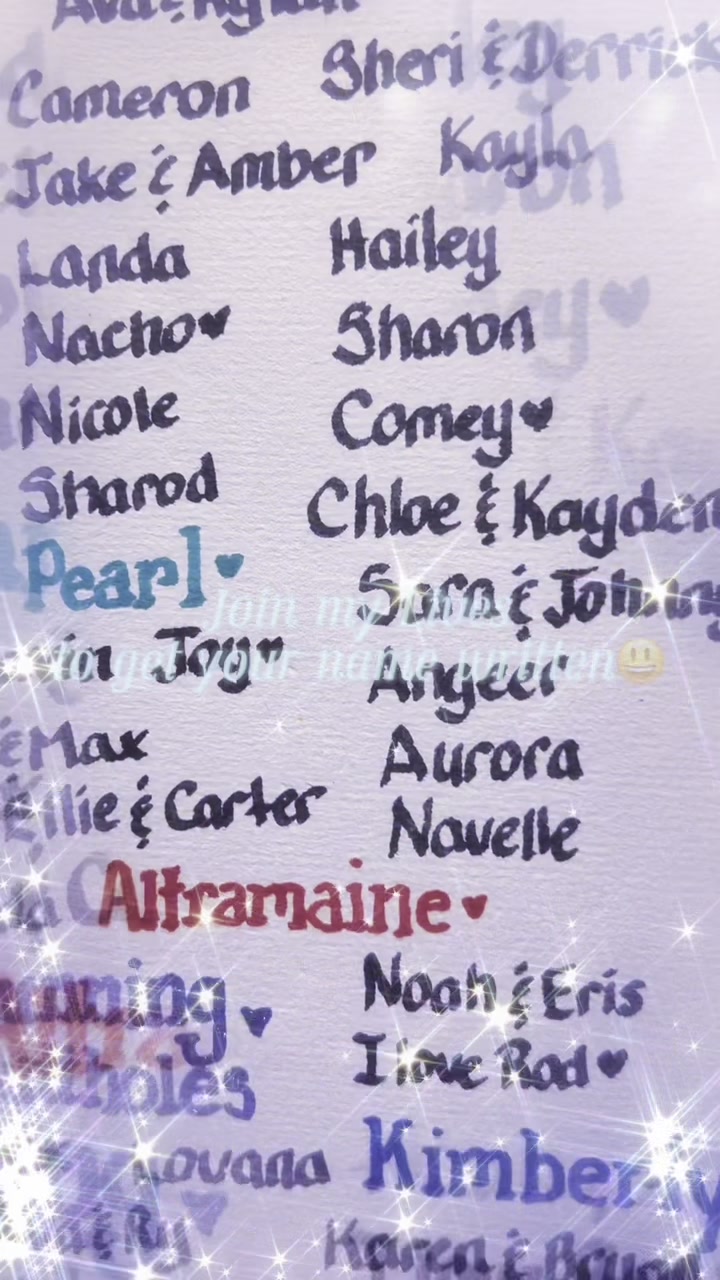 Cameron
Sheri & Derrick
Jake & Amber
Kayla
Landa
Hailey
Nacho♥
Sharon
Nicole
Comey♥
Sharod
Chloe & Kayden
Pearl♥
Sara & Johnny
Join my Lives
to get your name written😃
Joy♥
& Max
Aurora
Ellie & Carter
Navelle
Altramaine♥
Noah & Eris
I love Rod♥
Lovana
Kimberly
& Ry
Karen &